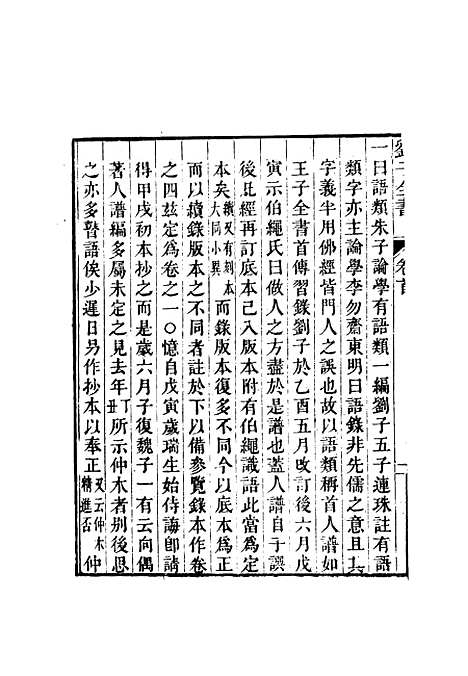 劉子全書
卷首
一
一曰語類朱子論學有語類一編劉子五子連珠註有語
類字亦主論學李勿齋東明曰語錄非先儒之意且其
字義半用佛經皆門人之誤也故以語類稱首人譜如
王子全書首傳習錄劉子於乙酉五月改訂後六月戊
寅示伯繩氏曰做人之方盡於是譜也蓋人譜自于誤
後此經再訂底本已入版本附有伯繩識語此當為定
本矣續又有刻本大同小異而錄版本復多不同今以底本為正
而以續錄版本之不同者註於下以備參覽錄本作卷
之四茲定為卷之一〇憶自戊寅歲瑞生始侍誨卽請
得甲戌初本抄之而是歲六月子復魏子一有云向偶
著人譜編多屬未定之見去年丁丑所示仲木者别後思
之亦多瞖語俟少遲日另作抄本以奉正又云仲木精進否仲